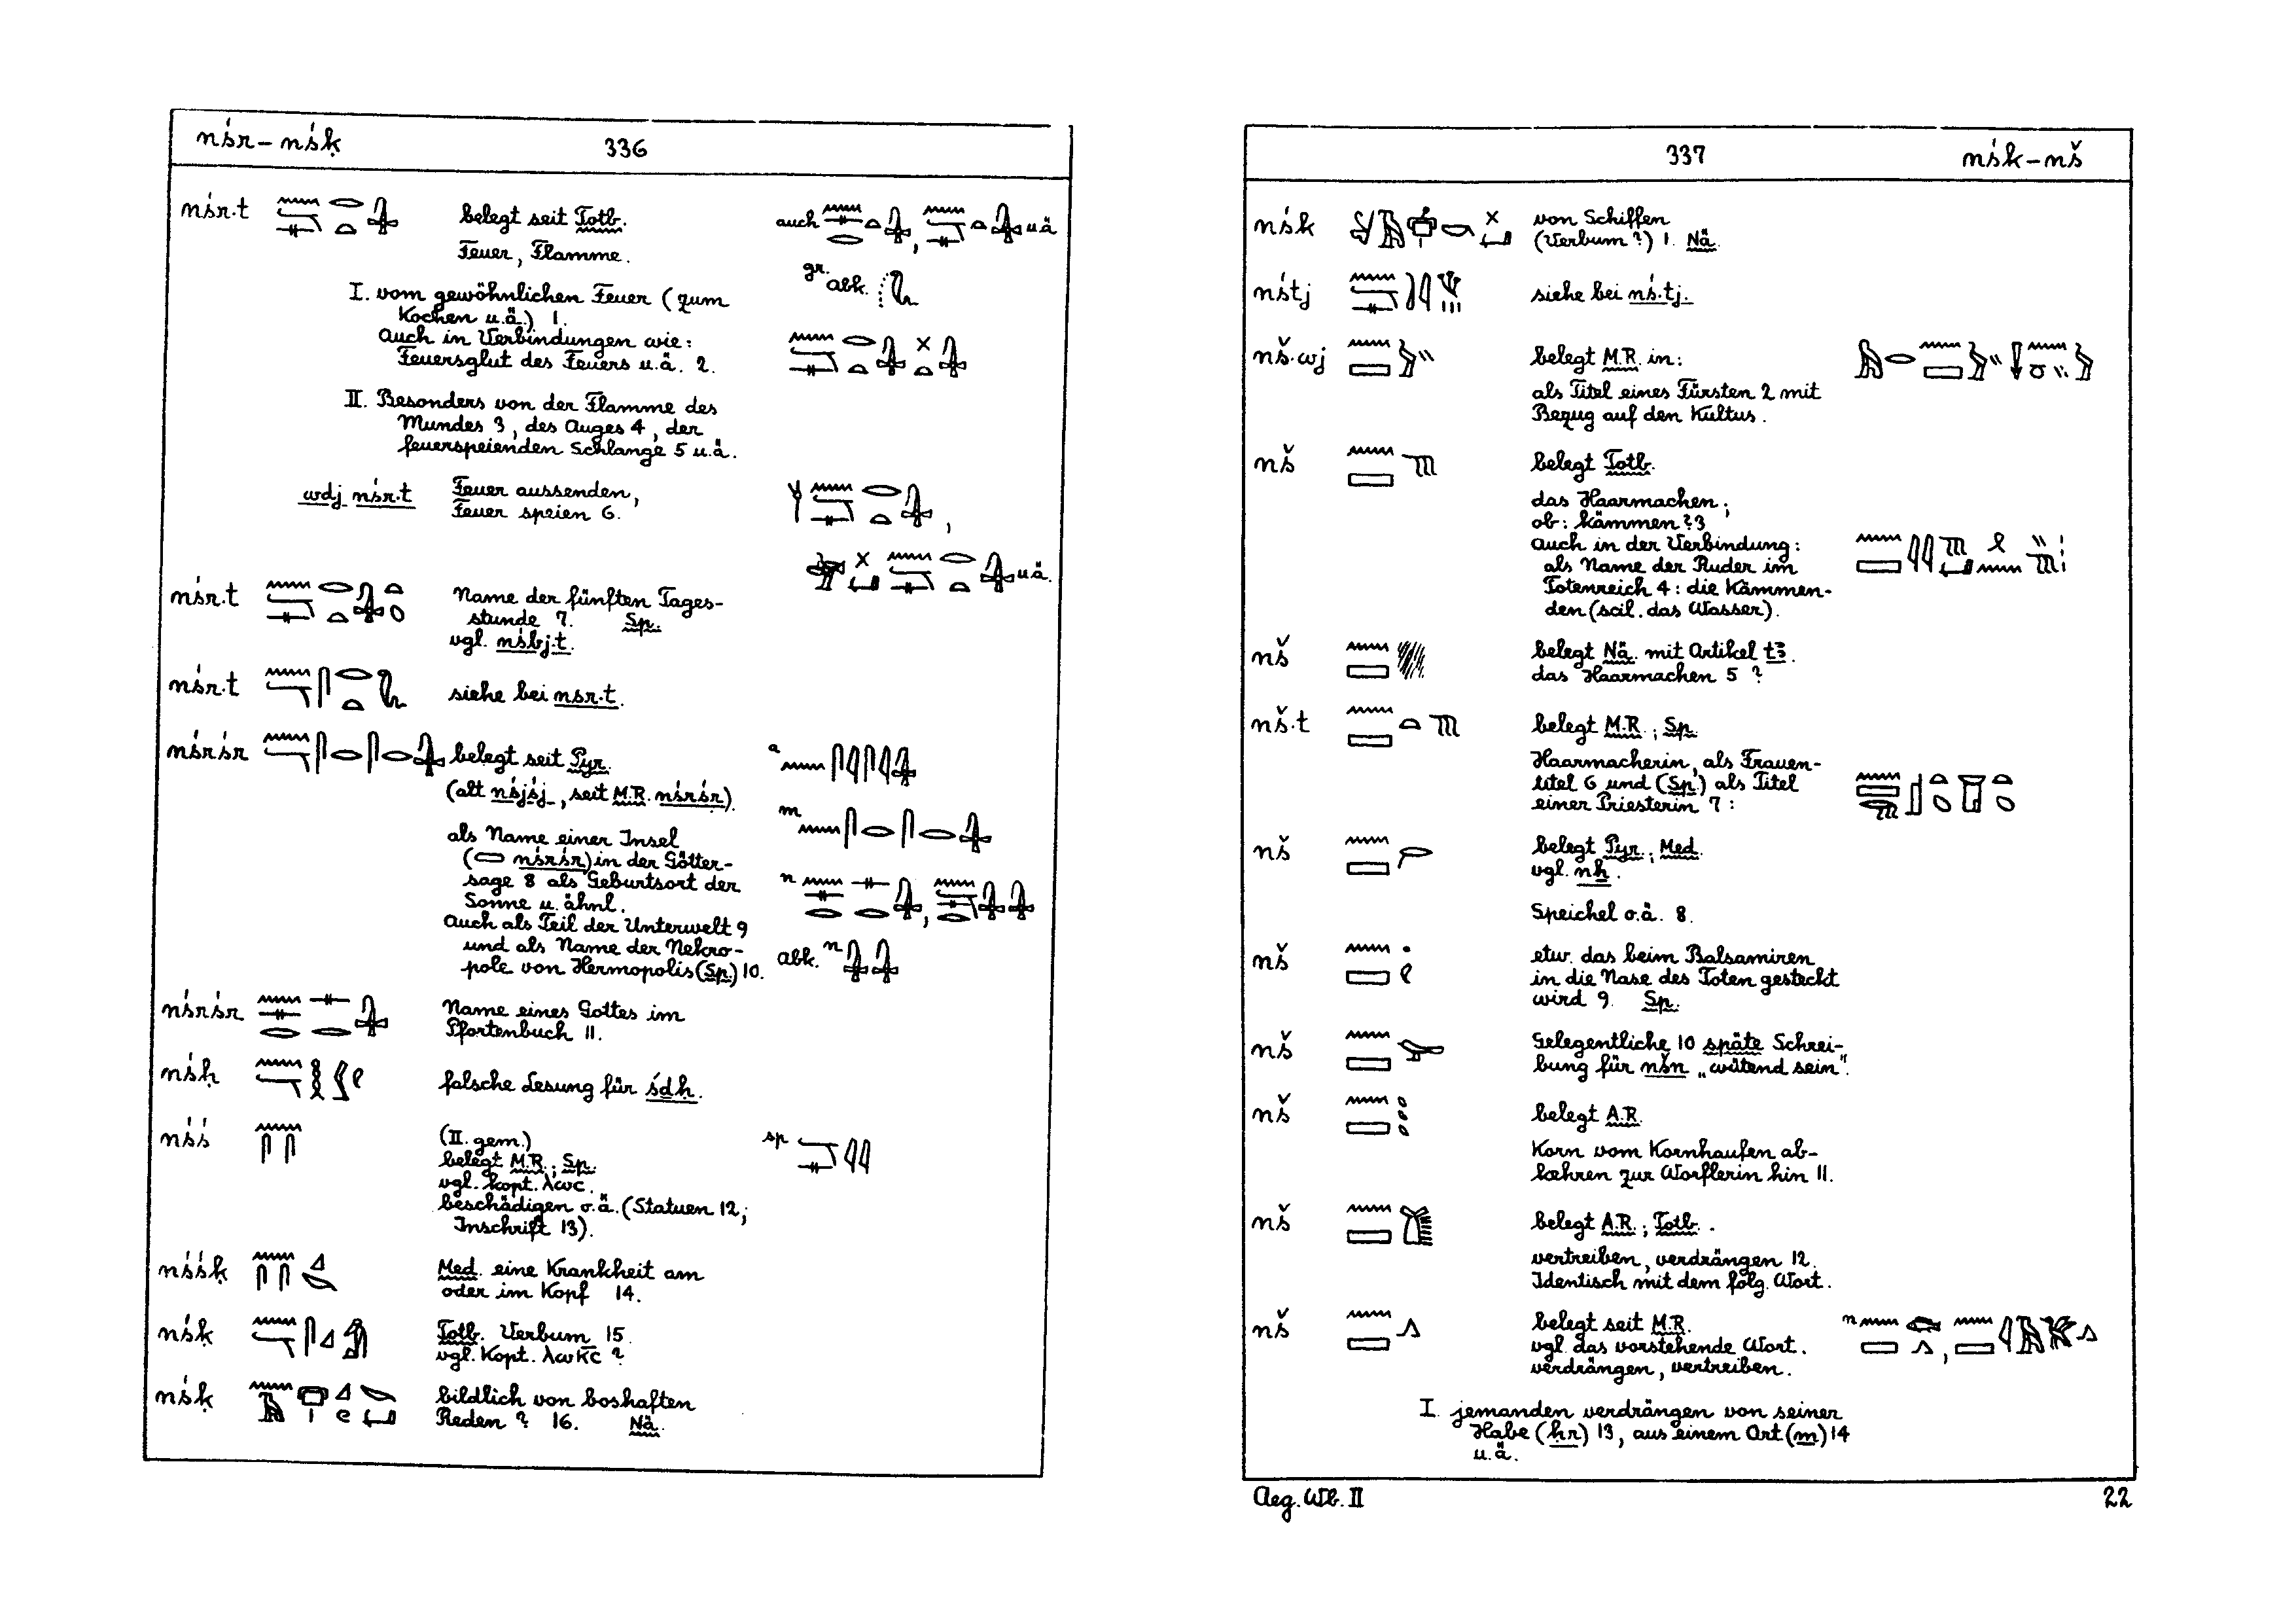 nśr – nśḳ 336
nśr·t belegt seit Totb. auch , uä
Feuer, Flamme.
gr. abk.
I. vom gewöhnlichen Feuer (zum
Kochen u.ä.) 1.
Auch in Verbindungen wie:
Feuersglut des Feuers u.ä. 2.
II. Besonders von der Flamme des
Mundes 3, des Auges 4, der
feuerspeienden Schlange 5 u.ä.
wdj nśr·t Feuer aussenden,
Feuer speien 6. ,
uä.
nśr·t Name der fünften Tages-
stunde 7. Sp.
vgl. nśbj·t.
nśr·t siehe bei nsr·t.
nśrśr belegt seit Pyr. a
(alt nśjśj, seit M.R. nśrśr). m
als Name einer Insel
( nśrśr) in der Götter-
sage 8 als Geburtsort der n ,
Sonne u. ähnl.
Auch als Teil der Unterwelt 9
und als Name der Nekro-
pole von Hermopolis (Sp.) 10. abk. n
nśrśr Name eines Gottes im
Pfortenbuch 11.
nśḥ falsche Lesung für śdḥ.
nśś (II. gem.) sp
belegt M.R.; Sp.
vgl. kopt. ⲗⲱⲥ.
beschädigen o.ä. (Statuen 12;
Inschrift 13).
nśśḳ Med. eine Krankheit am
oder im Kopf 14.
nśḳ Totb. Verbum 15.
vgl. Kopt. ⲗⲱⲕ̅ⲥ̅ ?
nśḳ bildlich von boshaften
Reden ? 16. Nä.
337 nśk – nš
nśk von Schiffen
(Verbum?) 1. Nä.
nśtj siehe bei nś·tj.
nš·wj belegt M.R. in:
als Titel eines Fürsten 2 mit
Bezug auf den Kultus.
nš belegt Totb.
das Haarmachen;
ob: kämmen? 3
Auch in der Verbindung:
als Name der Ruder im
Totenreich 4: die Kämmen-
den (scil. das Wasser).
nš belegt Nä. mit Artikel tꜣ.
das Haarmachen 5 ?
nš·t belegt M.R.; Sp.
Haarmacherin, als Frauen-
titel 6 und (Sp.) als Titel
einer Priesterin 7:
nš belegt Pyr.; Med.
vgl. nẖ.
Speichel o.ä. 8.
nš etw. das beim Balsamiren
in die Nase des Toten gesteckt
wird 9. Sp.
nš Gelegentliche 10 späte Schrei-
bung für nšn „wütend sein".
nš belegt A.R.
Korn vom Kornhaufen ab-
kehren zur Worflerin hin 11.
nš belegt A.R.; Totb.
vertreiben, verdrängen 12.
Identisch mit dem folg. Wort.
nš belegt seit M.R. n ,
vgl. das vorstehende Wort.
verdrängen, vertreiben.
I. jemanden verdrängen von seiner
Habe (ḥr) 13, aus einem Ort (m) 14
u.ä.
Aeg. Wb. II 22